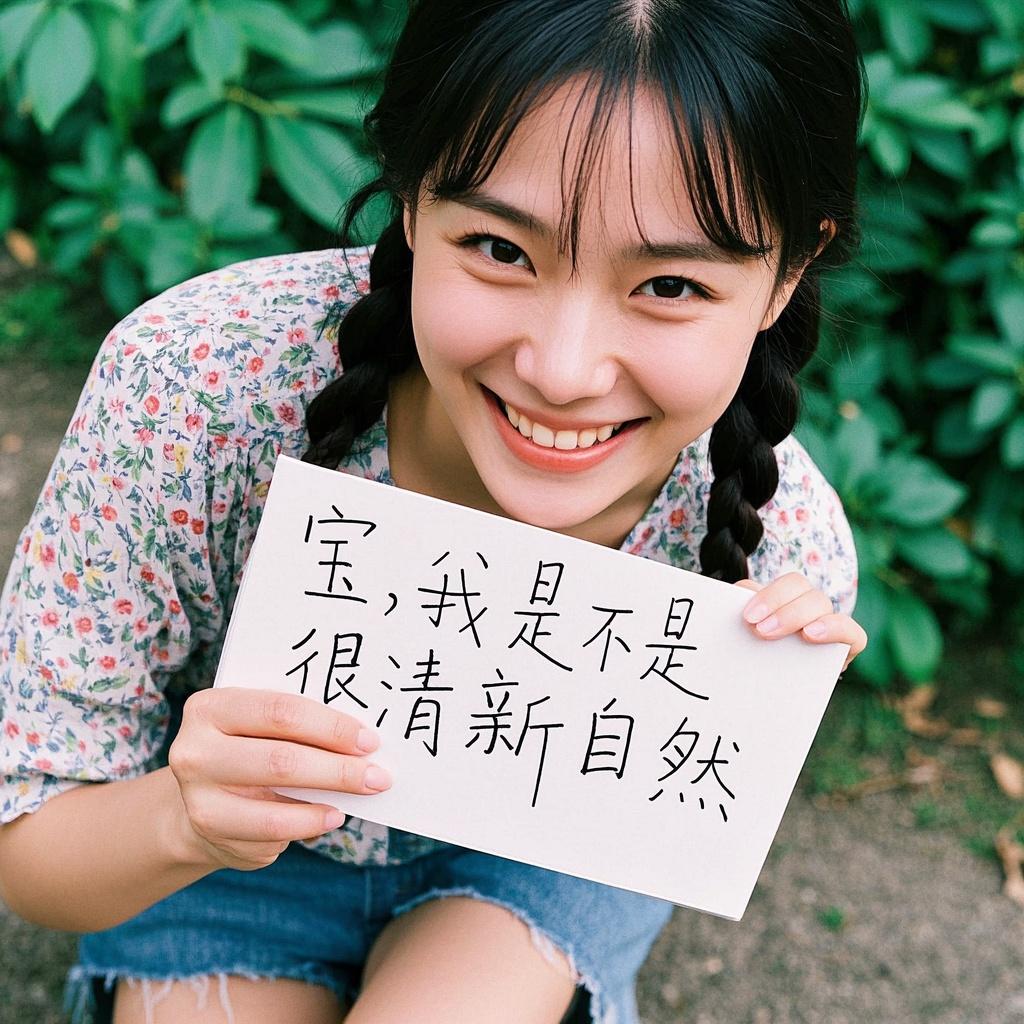 宝,我是不是
很清新自然